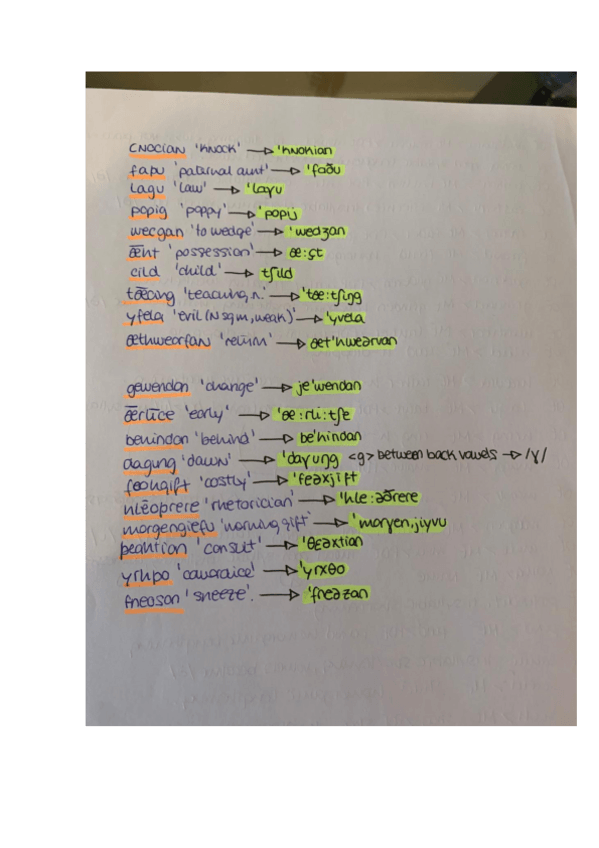 cnocian 'knock' → 'knokian
faþu 'paternal aunt' → 'faðu
lagu 'law' → 'laɣu
popig 'poppy' → 'popij
wecgan 'to wedge' → 'wedʒan
ǣht 'possession' → æ:çt
cild 'child' → tʃild
tǣcing 'teaching, n.' → 'tæ:tʃing
yfela 'evil (N sg m, weak)' → 'yvela
æthwearfan 'return' → æt'hweərvan
gewendan 'change' → je'wendan
ǣrlīce 'early' → 'æ:rli:tʃe
behindan 'behind' → be'hindan
dagung 'dawn' → 'daɣung <g> between back vowels → /ɣ/
feohgift 'costly' → 'feəxjift
hlēoþrere 'rhetorician' → 'hle:əðrere
morgengiefu 'morning gift' → 'morɣen,jiyvu
þeahtian 'consult' → 'θɛəxtian
yrhþo 'cowardice' → 'yrxθo
fneosan 'sneeze'. → 'fneəzan